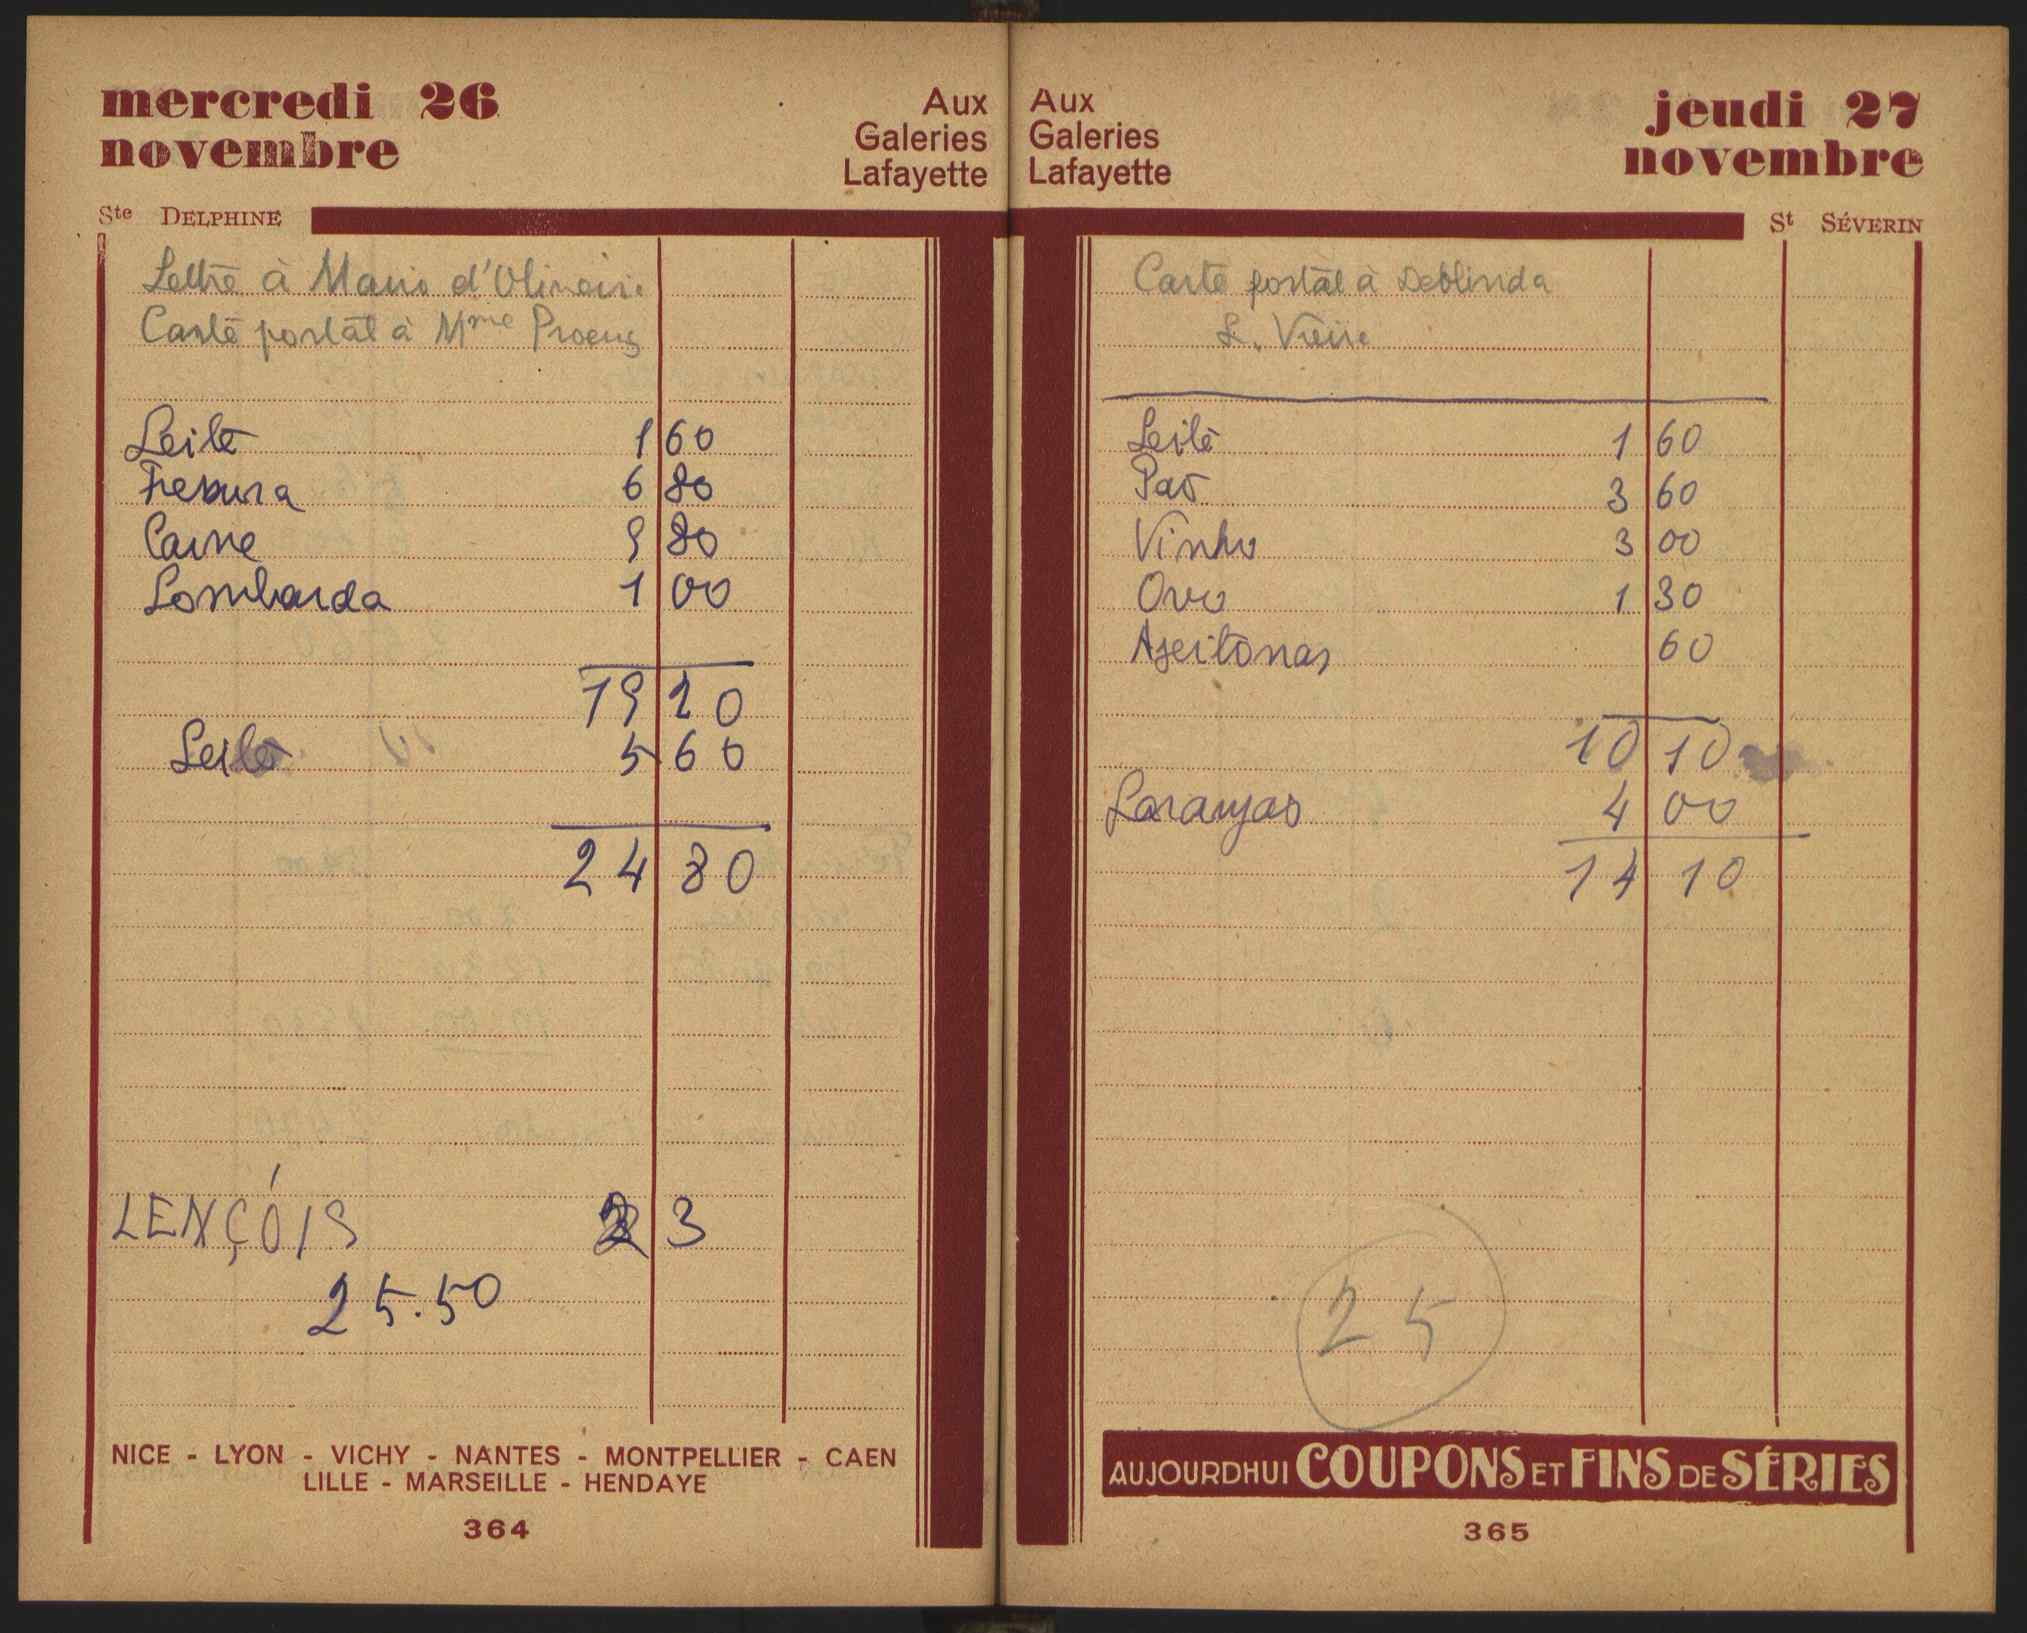 mercredi 26
novembre
Aux
Galeries
Lafayette
Ste DELPHINE
Lettre à Maria d'Oliveira
Carte postal à Mme Proenç
Leite 1 60
Fresura 6 80
Carne 9 80
Lombarda 1 00
19 20
Leite 5 60
24 80
LENÇÓIS 3
25.50
NICE - LYON - VICHY - NANTES - MONTPELLIER - CAEN
LILLE - MARSEILLE - HENDAYE
364
Aux
Galeries
Lafayette
jeudi 27
novembre
St SÉVERIN
Carte postal à Deolinda
L. Vieira
Leite 1 60
Pão 3 60
Vinho 3 00
Ovo 1 30
Azeitonas 60
10 10
Laranjas 4 00
14 10
25
AUJOURDHUI COUPONS ET FINS DE SÉRIES
365